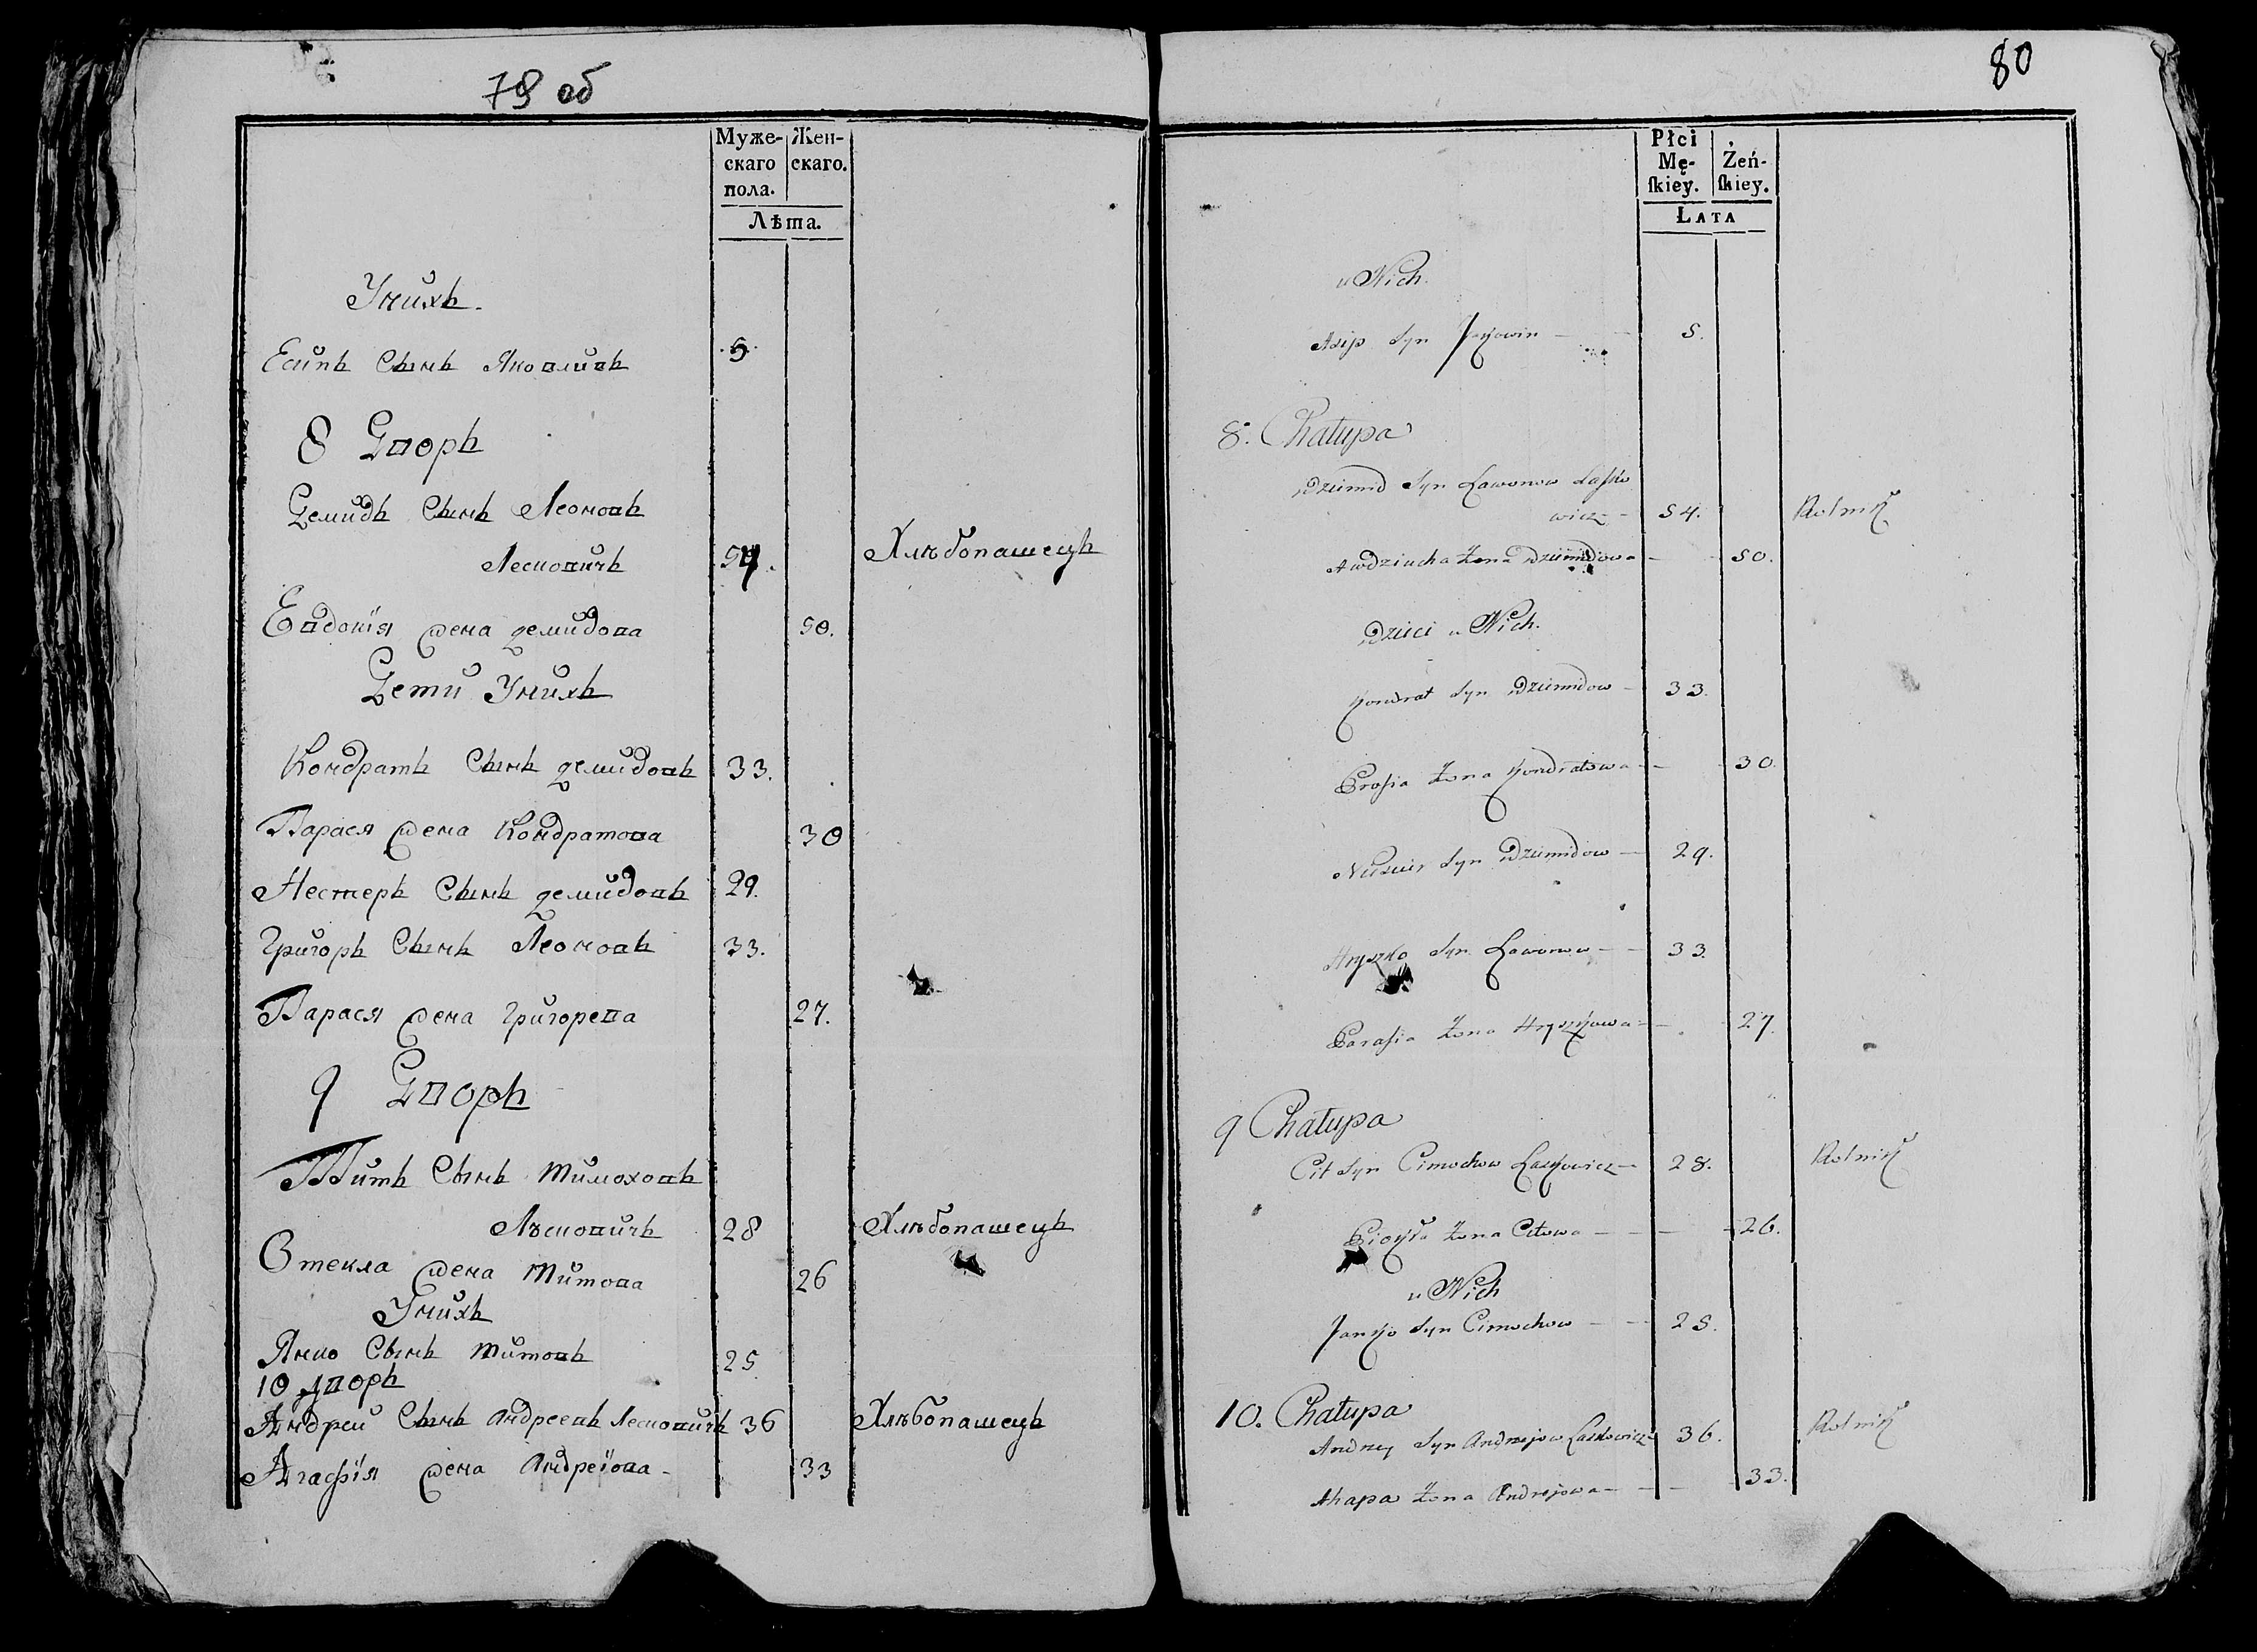 79 об
Муже- Жен-
скаго скаго.
пола.
Лѣта.
Унихъ.
Есипъ Сынъ Яковливъ 5
8 Дворъ
Демидъ Сынъ Леоновъ
Лесковичъ 54. Хлѣбопашецъ
Евдокія жена демидова 50.
Дети Унихъ
Кондратъ Сынъ демидовъ 33.
Парася жена Кондратова 30
Нестеръ Сынъ демидовъ 29.
Григоръ Сынъ Леоновъ 33.
Парася жена Григорева 27.
9 Дворъ
Титъ Сынъ Тимоховъ
Лѣсковичъ 28 Хлѣбопашецъ
Стекла жена Титова 26
Унихъ
Янко Сынъ Титовъ 25
10 дворъ
Андрей Сынъ Андреевъ Лесковичъ 36 Хлѣбопашецъ
Агафія жена Андреіова - 33
80
Płci
Mę- Żeń-
ſkiey. ſkiey.
Łata
u Nich.
Asip Syn 5.
8. Chałupa
Dziemid Syn Ławonow Laſko
wicz - 54. Rolnik
Awdziucha Żona Dziemidowa - 50.
Dzieci u Nich.
Kondrat Syn Dziemidow - 33.
Prosia Żona Kondratowa - 30.
Syn Dziemidow - 29.
Hryszko Syn Ławonow - 33.
Parasia Żona Hryszkowa - 27.
9 Chałupa
Cit Syn Cimochow Laskowicz - 28. Rolnik
Żona Citowa - 26.
u Nich
Janko Syn Cimochow - 25.
10. Chałupa
Andrzey Syn Andrzejow Laskowicz 36. Rolnik
Ahapa Żona Andrzejowa - 33.